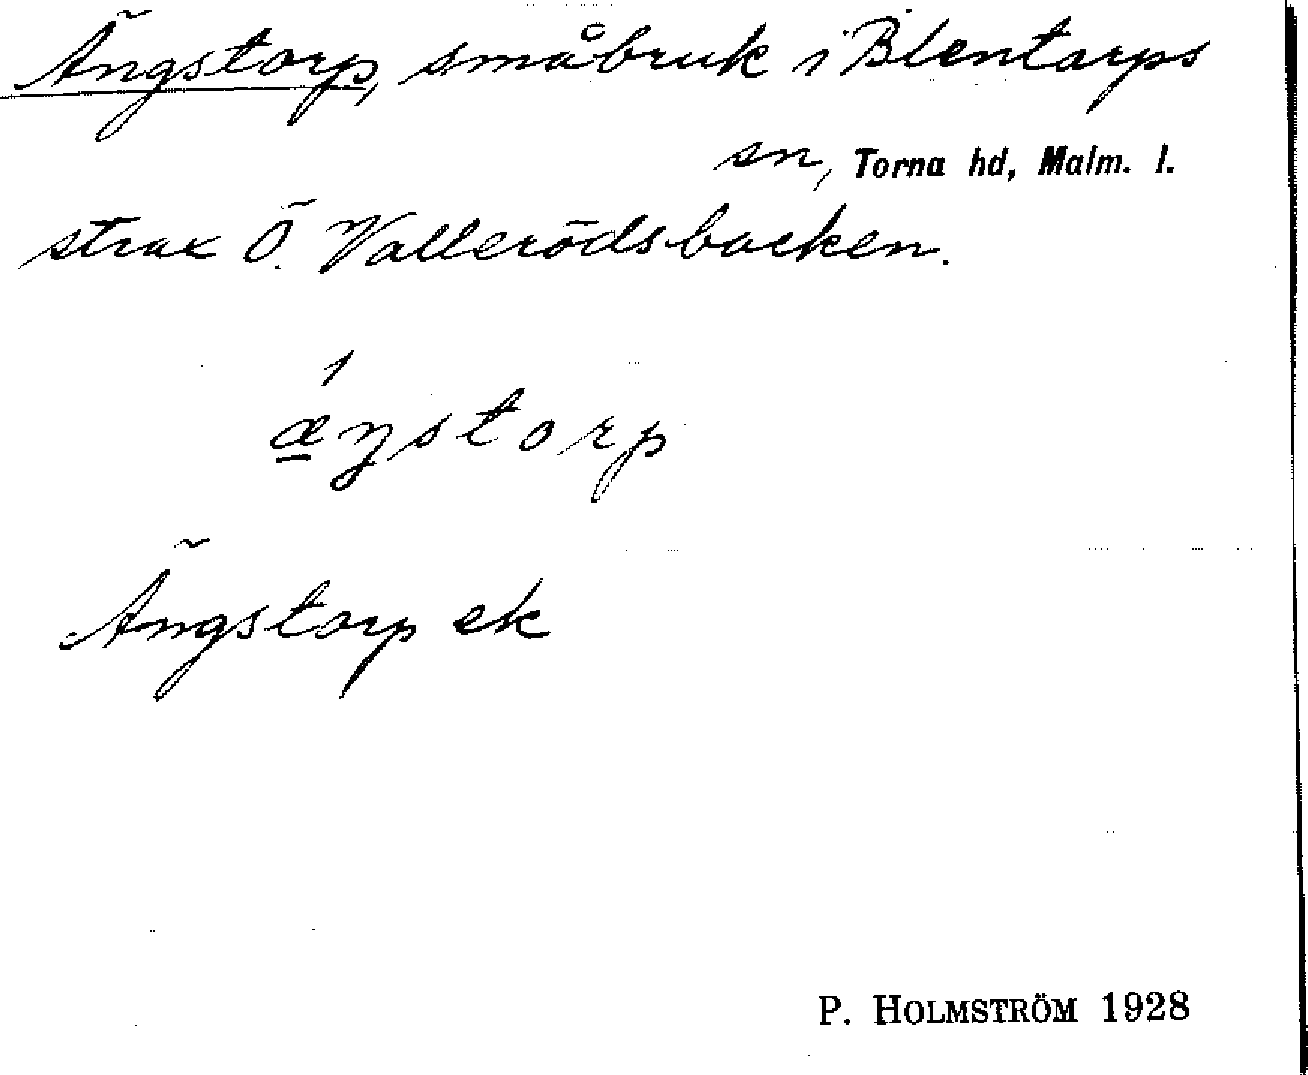 Ängstorp, småbruk i Blentarps
sn, Torna hd, Malm. l.
strax Ö. Vallerödsbacken.
ǽŋstorp
Ängstorp ek
P. HOLMSTRÖM 1928